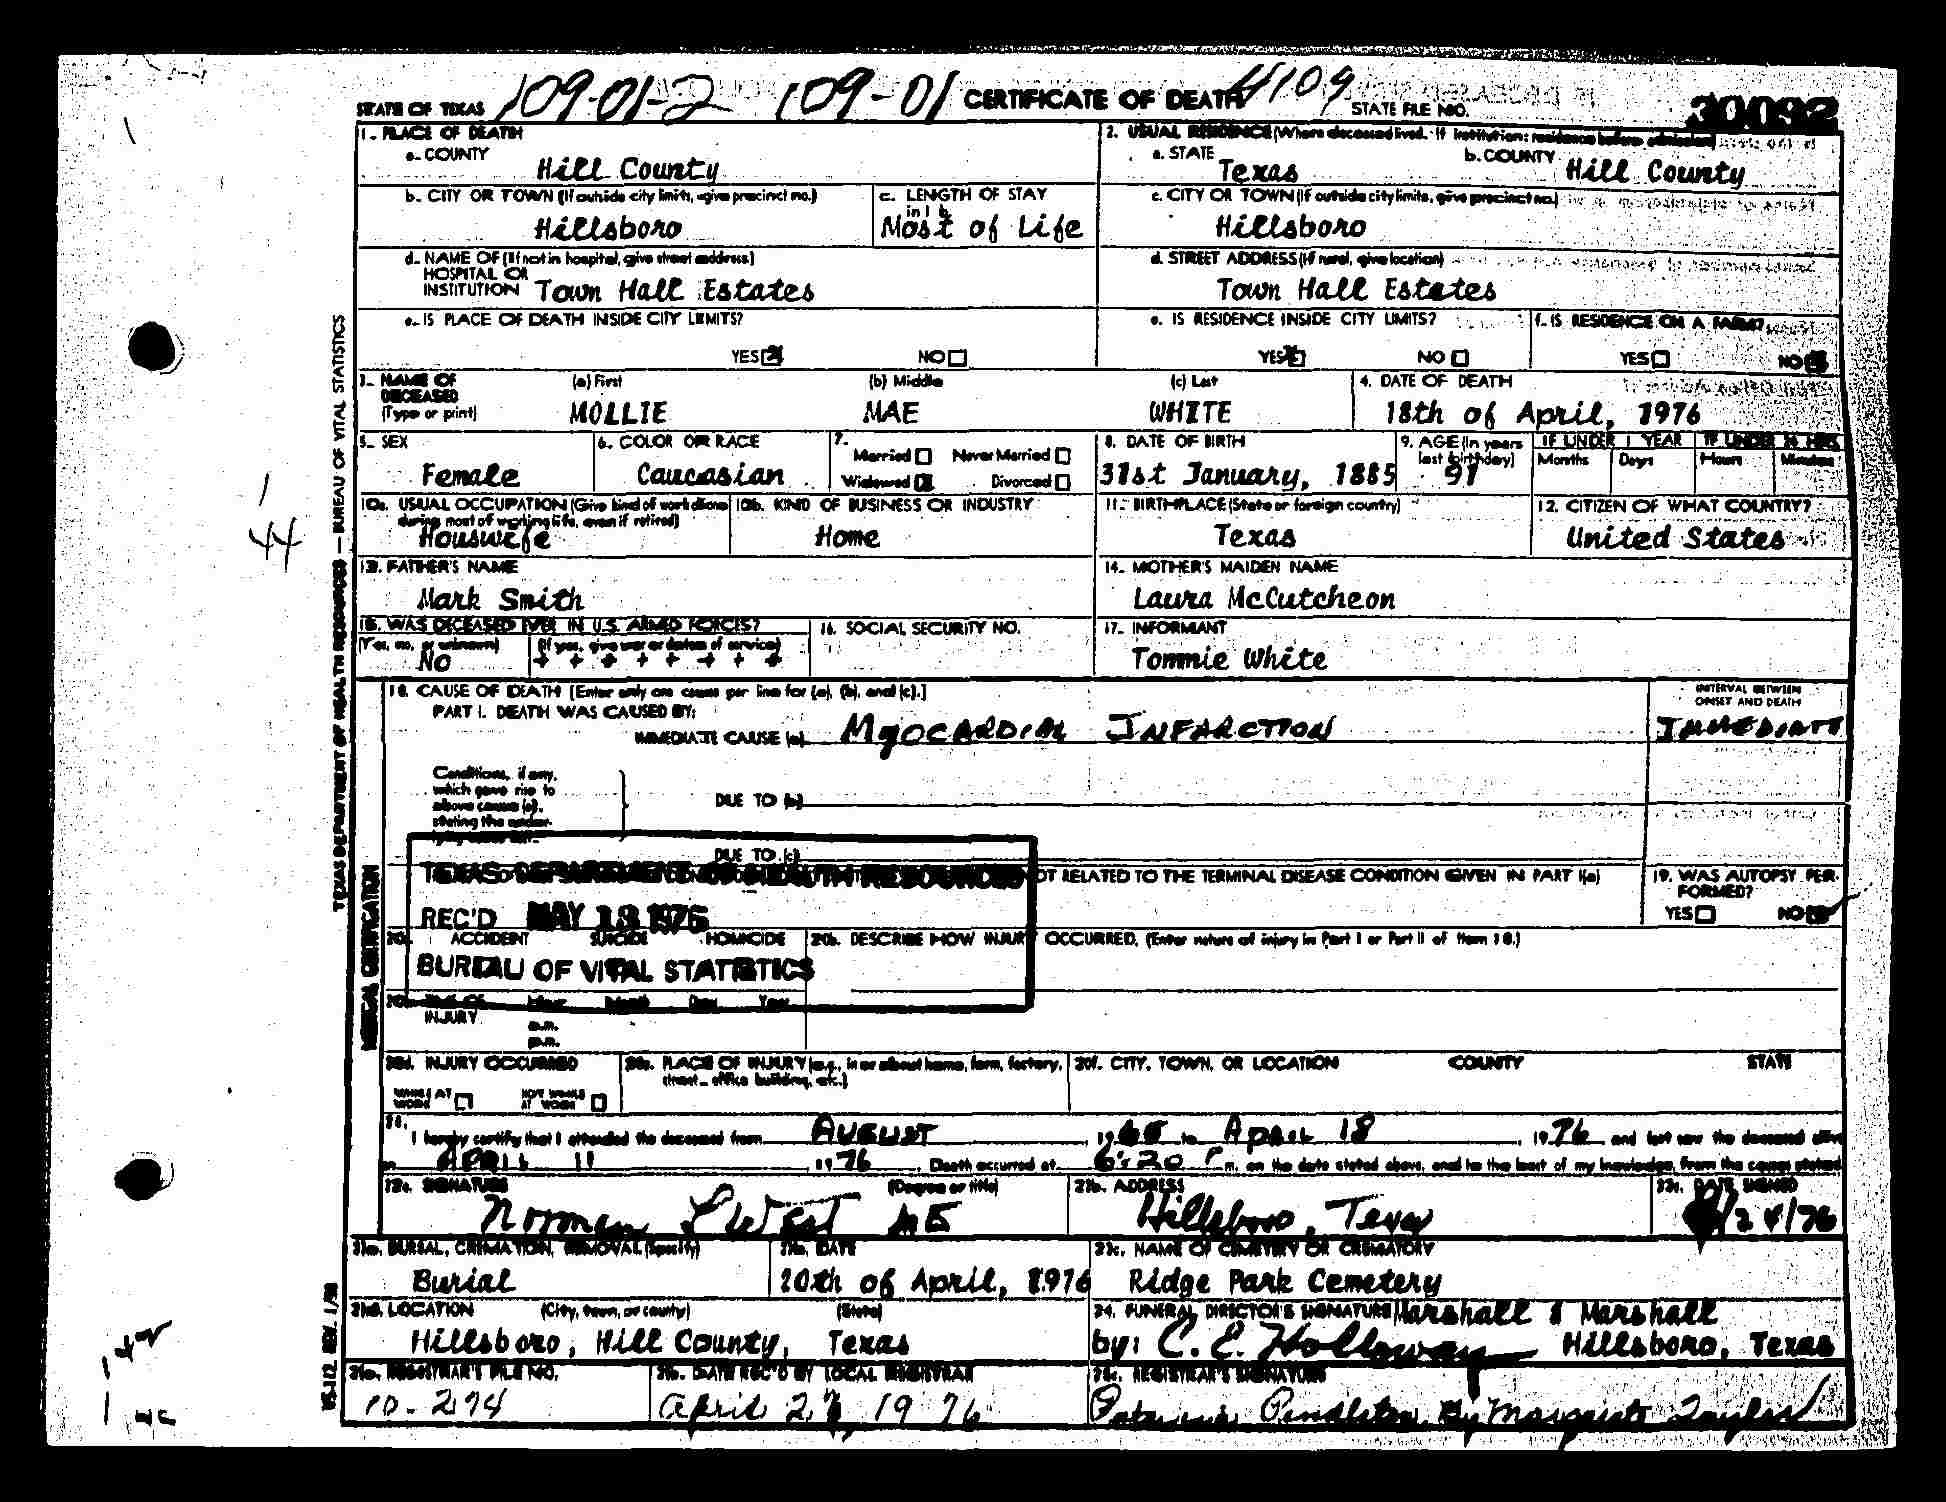 STATE OF TEXAS 109-01-2 109-01 CERTIFICATE OF DEATH 4109 STATE FILE NO. 30092
1. PLACE OF DEATH
a. COUNTY
Hill County
2. USUAL RESIDENCE (Where deceased lived. If institution: residence before admission)
a. STATE
Texas
b. COUNTY
Hill County
b. CITY OR TOWN (If outside city limits, give precinct no.)
Hillsboro
c. LENGTH OF STAY
in 1 b.
Most of Life
c. CITY OR TOWN (If outside city limits, give precinct no.)
Hillsboro
d. NAME OF (If not in hospital, give street address)
HOSPITAL OR
INSTITUTION Town Hall Estates
d. STREET ADDRESS (If rural, give location)
Town Hall Estates
e. IS PLACE OF DEATH INSIDE CITY LIMITS?
YES NO
e. IS RESIDENCE INSIDE CITY LIMITS?
YES NO
f. IS RESIDENCE ON A FARM?
YES NO
3. NAME OF
DECEASED
(Type or print)
(a) First
MOLLIE
(b) Middle
MAE
(c) Last
WHITE
4. DATE OF DEATH
18th of April, 1976
5. SEX
Female
6. COLOR OR RACE
Caucasian
7.
Married Never Married
Widowed Divorced
8. DATE OF BIRTH
31st January, 1885
9. AGE (In years
last birthday)
91
IF UNDER 1 YEAR
Months Days
IF UNDER 24 HRS.
Hours Minutes
10a. USUAL OCCUPATION (Give kind of work done
during most of working life, even if retired)
Houswife
10b. KIND OF BUSINESS OR INDUSTRY
Home
11. BIRTHPLACE (State or foreign country)
Texas
12. CITIZEN OF WHAT COUNTRY?
United States
13. FATHER'S NAME
Mark Smith
14. MOTHER'S MAIDEN NAME
Laura McCutcheon
15. WAS DECEASED EVER IN U.S. ARMED FORCES?
(Yes, no, or unknown)
No
(If yes, give war or dates of service)
+ + + + + + + +
16. SOCIAL SECURITY NO.
17. INFORMANT
Tommie White
18. CAUSE OF DEATH [Enter only one cause per line for (a), (b), and (c).]
PART I. DEATH WAS CAUSED BY:
IMMEDIATE CAUSE (a) Myocardial Infarction
INTERVAL BETWEEN
ONSET AND DEATH
Immediate
Conditions, if any,
which gave rise to
above cause (a),
stating the under-
DUE TO (b)
DUE TO (c)
NOT RELATED TO THE TERMINAL DISEASE CONDITION GIVEN IN PART I(a)
19. WAS AUTOPSY PER-
FORMED?
YES NO
TEXAS DEPARTMENT OF HEALTH RESOURCES
REC'D MAY 13 1976
BUREAU OF VITAL STATISTICS
20a. ACCIDENT SUICIDE HOMICIDE
20b. DESCRIBE HOW INJURY OCCURRED. (Enter nature of injury in Part I or Part II of Item 18.)
20c. TIME OF Hour Month Day Year
INJURY
a.m.
p.m.
20d. INJURY OCCURRED
WHILE AT
WORK
NOT WHILE
AT WORK
20e. PLACE OF INJURY (e.g., in or about home, farm, factory,
street, office building, etc.)
20f. CITY, TOWN, OR LOCATION COUNTY STATE
21.
I hereby certify that I attended the deceased from August, 1965 to April 18, 1976 and last saw the deceased alive
on April 11, 1976. Death occurred at 6:20 P m. on the date stated above, and to the best of my knowledge, from the causes stated.
22a. SIGNATURE (Degree or title)
Norman L West MD
22b. ADDRESS
Hillsboro, Texas
22c. DATE SIGNED
/24/76
23a. BURIAL, CREMATION, REMOVAL (Specify)
Burial
23b. DATE
20th of April, 1976
23c. NAME OF CEMETERY OR CREMATORY
Ridge Park Cemetery
23d. LOCATION (City, town, or county) (State)
Hillsboro, Hill County, Texas
24. FUNERAL DIRECTOR'S SIGNATURE Marshall & Marshall
by: C. E. Holloway Hillsboro, Texas
25a. REGISTRAR'S FILE NO.
10-274
25b. DATE REC'D BY LOCAL REGISTRAR
April 19 76
25c. REGISTRAR'S SIGNATURE
Pendleton By Marguerite Taylor
TEXAS DEPARTMENT OF HEALTH RESOURCES — BUREAU OF VITAL STATISTICS
MEDICAL CERTIFICATION
VS-112 REV. 1/58
1
44